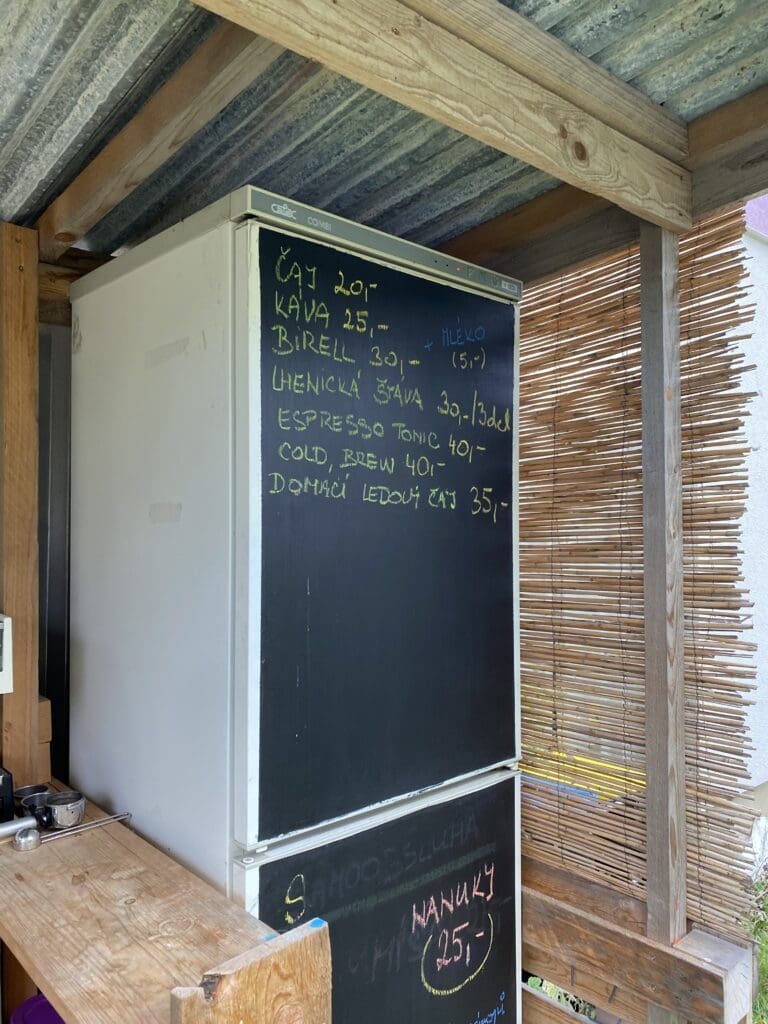 COMBI
ČAJ 20,-
KÁVA 25,- + MLÉKO (5,-)
BIRELL 30,-
LHENICKÁ ŠŤÁVA 30,-/3dcl
ESPRESSO TONIC 40,-
COLD, BREW 40,-
DOMACÍ LEDOVÝ ČAJ 35,-
SAMOOBSLUHA
NANUKY
25,-